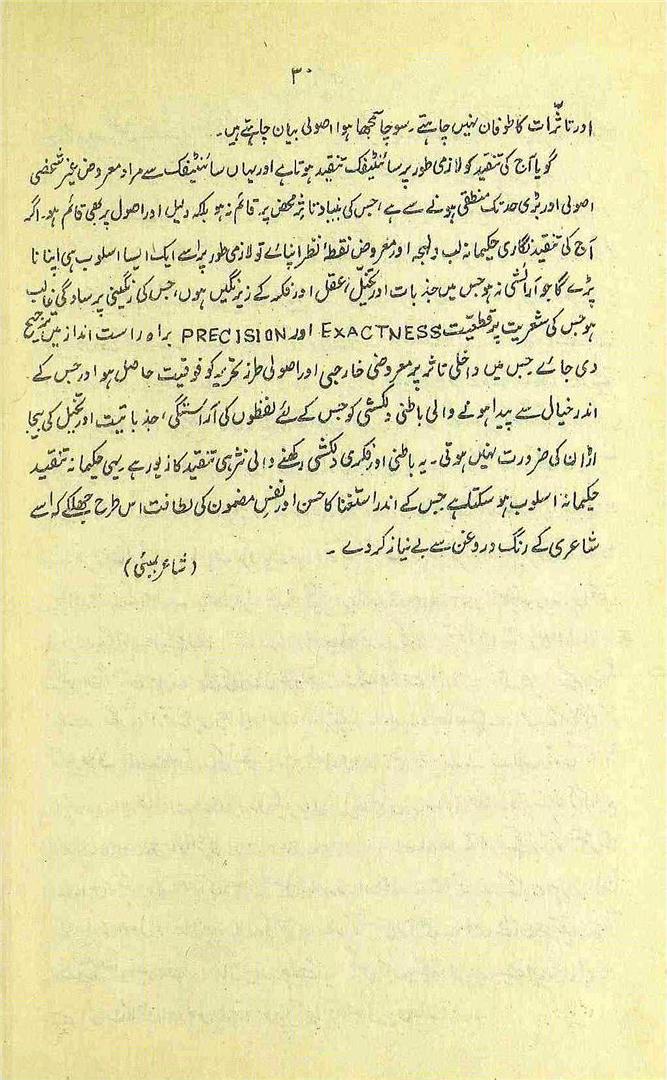 ۳۰
اور تاثّرات کا طوفان نہیں چاہتے۔ سوچا سمجھا ہوا اصولی بیان چاہتے ہیں۔
گویا آج کی تنقید کو لازمی طور پر سائنٹیفک تنقید ہوتا ہے اور یہاں سائنٹیفک سے مراد معروض غیر شخصی
اصولی اور بڑی حد تک منطقی ہونے سے ہے، جس کی بنیاد تاثر محض پر قائم نہ ہو بلکہ دلیل اور اصول پر بھی قائم ہو۔ اگر
آج کی تنقید نگاری حکیمانہ لب و لہجہ اور معروض نقطۂ نظر اپنائے تو لازمی طور پر اسے ایک ایسا اسلوب ہی اپنانا
پڑے گا جو آرائشی نہ ہو جس میں جذبات اور تخیّل، عقل اور فکر کے زیر نگیں ہوں، جس کی رنگینی پر سادگی غالب
ہو جس کی شعریت پر قطعیت EXACTNESS اور PRECISION براہ راست انداز میں ترجیح
دی جائے جس میں داخلی تاثر پر معروضی خارجی اور اصولی طرز تحریر کو فوقیت حاصل ہو اور جس کے
اندر خیال سے پیدا ہونے والی باطنی دلکشی کو جس کے لئے لفظوں کی آراستگی، جذباتیت اور تخیل کی بیجا
اڑان کی ضرورت نہیں ہوتی۔ یہ باطنی اور فکری دلکشی رکھنے والی نثر ہی تنقید کا زیور ہے۔ یہی حکیمانہ تنقید
حکیمانہ اسلوب ہو سکتا ہے جس کے اندر استغنا کا حسن اور نفسِ مضمون کی لطافت اس طرح جھلکے کہ اسے
شاعری کے رنگ و روغن سے بے نیاز کر دے۔
(شاعر بمبئی)